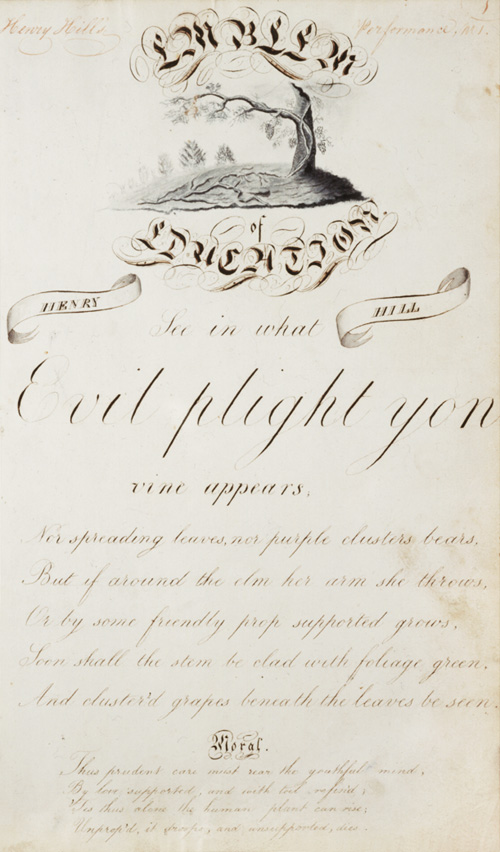 Henry Hill's Performance, No. 1.
EMBLEM
of
EDUCATION.
HENRY HILL
See in what
Evil plight yon
vine appears,
Nor spreading leaves, nor purple clusters bears,
But if around the elm her arm she throws,
Or by some friendly prop supported grows,
Soon shall the stem be clad with foliage green,
And cluster'd grapes beneath the leaves be seen.
Moral.
Thus prudent care must rear the youthful mind,
By love supported, and with toil refin'd;
'Tis thus alone the human plant can rise;
Unprop'd, it droops, and unsupported, dies.